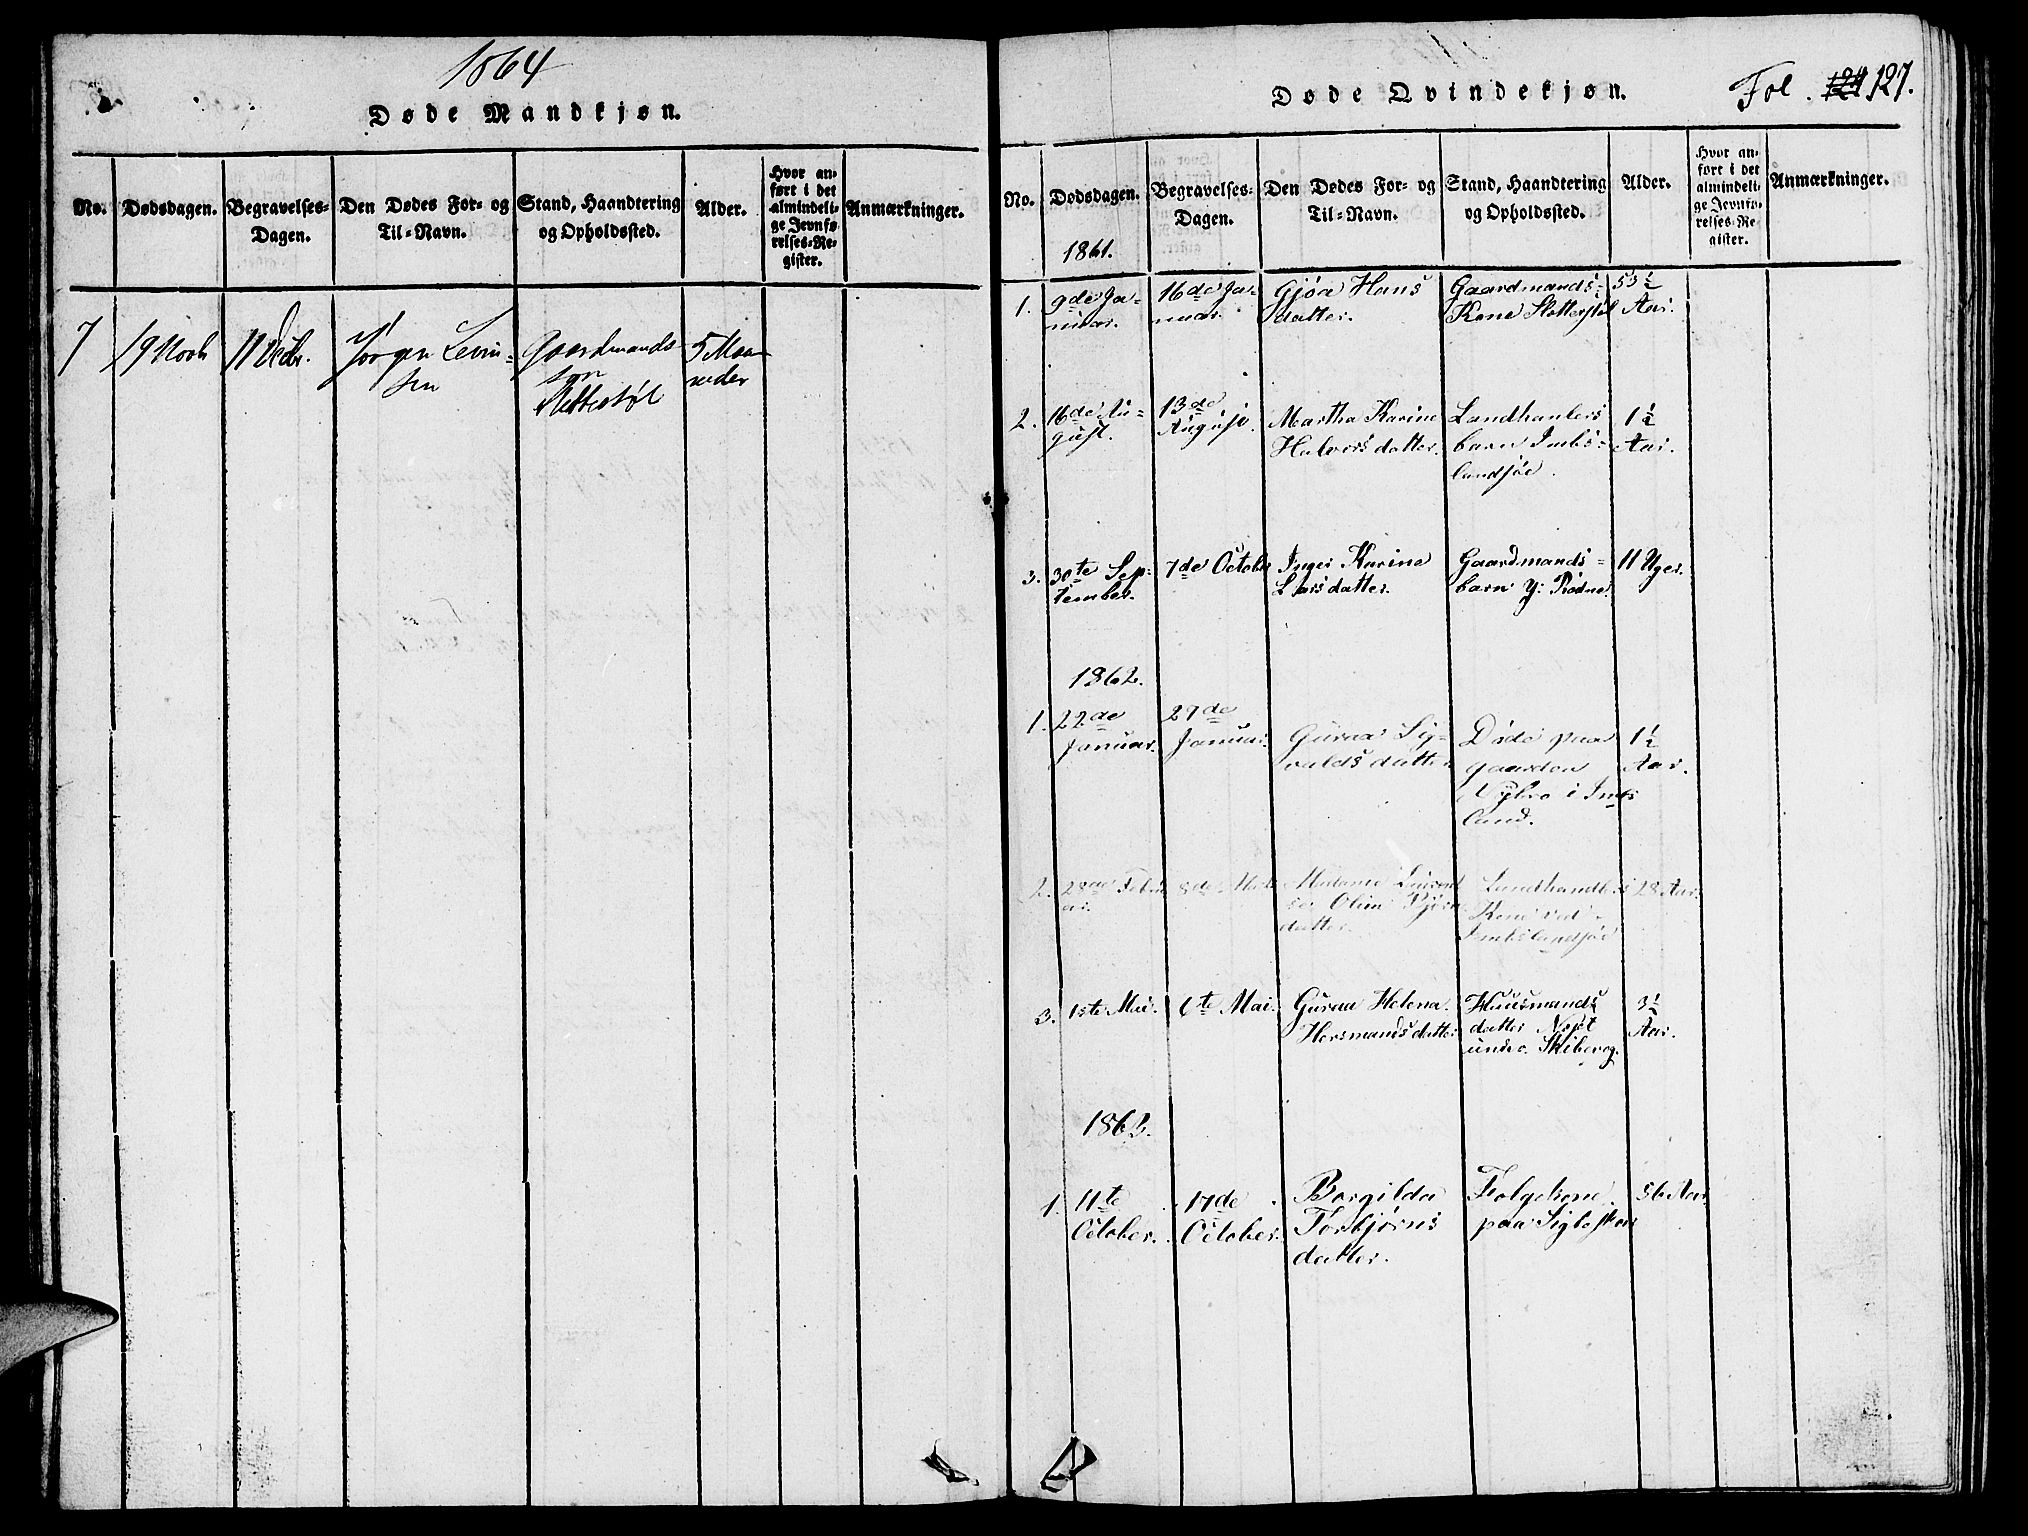 1864
Døde Mandkjøn.
No.
Dødsdagen.
Begravelses-
Dagen.
Den Dødes For- og
Til-Navn.
Stand, Haandtering
og Opholdssted.
Alder.
Hvor an-
ført i det
almindeli-
ge Jevnfø-
relses-Re-
gister.
Anmærkninger.
7
19 Novb
11 Decbr.
Jørgen Levin-
sen
Gaardmands
søn
Slettestøl
5 Maa-
neder
Døde Qvindekjøn.
Fol. 127.
No.
Dødsdagen.
Begravelses-
Dagen.
Den Dødes For- og
Til-Navn.
Stand, Haandtering
og Opholdssted.
Alder.
Hvor an-
ført i det
almindeli-
ge Jevnfø-
relses-Re-
gister.
Anmærkninger.
1861.
1.
9de Ja-
nuar.
16de Ja-
nuar.
Gjøa Hans
datter.
Gaardmands-
Kone Slettestøl
53 1/2
Aar.
2.
16de Au-
gust.
13de
August.
Martha Karine
Halvorsdatter.
Landhanlers
barn Imbs-
landsjøe.
1 1/2
Aar.
3.
30te Sep-
tember.
7de October
Inger Karine
Larsdatter.
Gaardmands-
barn y: Rødne.
11 Uger.
1862.
1.
22de
Januar.
29de
Januar.
Guraa Sig-
valdsdatter
Døde paa
gaarden
i Imbs
land.
1 1/2
Aar.
2.
28de Febru
ar.
8de
Madame
Oline Bjørn
datter.
Landhandlers
Kone ved
Imbslandsjøe
28 Aar.
3.
1ste Mai.
6te Mai.
Guraa Helena
Hersmandsdatter
Huusmands
datter
under Skiberg.
3 1/2
Aar.
1.
11te
October.
17de
October.
Borgilda
Torbjørns
datter.
Folgekone
paa
86 Aar